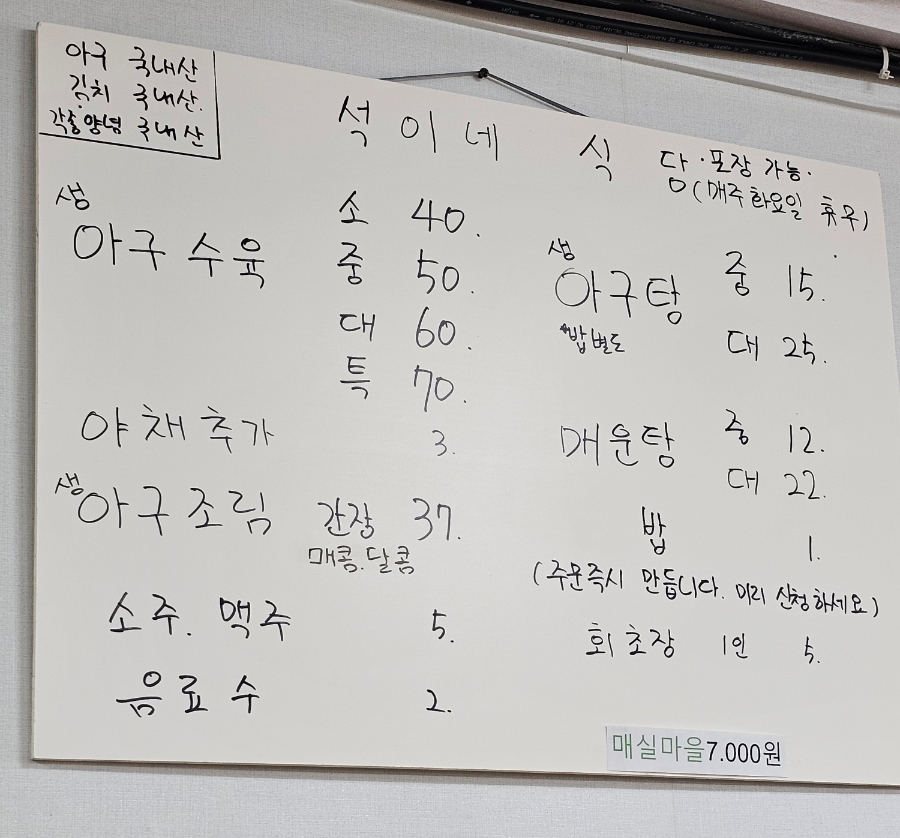 아구 국내산
김치 국내산.
각종양념 국내산
석이네 식당 · 포장 가능 ·
(매주 화요일 휴무)
생
아구 수육 소 40.
중 50.
대 60.
특 70.
야채추가 3.
생
아구조림 간장 37.
매콤.달콤
소주. 맥주 5.
음료수 2.
생
아구탕 중 15.
밥별도 대 25.
매운탕 중 12.
대 22.
밥 1.
(주문즉시 만듭니다. 미리 신청하세요)
회초장 1인 5.
매실마을7.000원